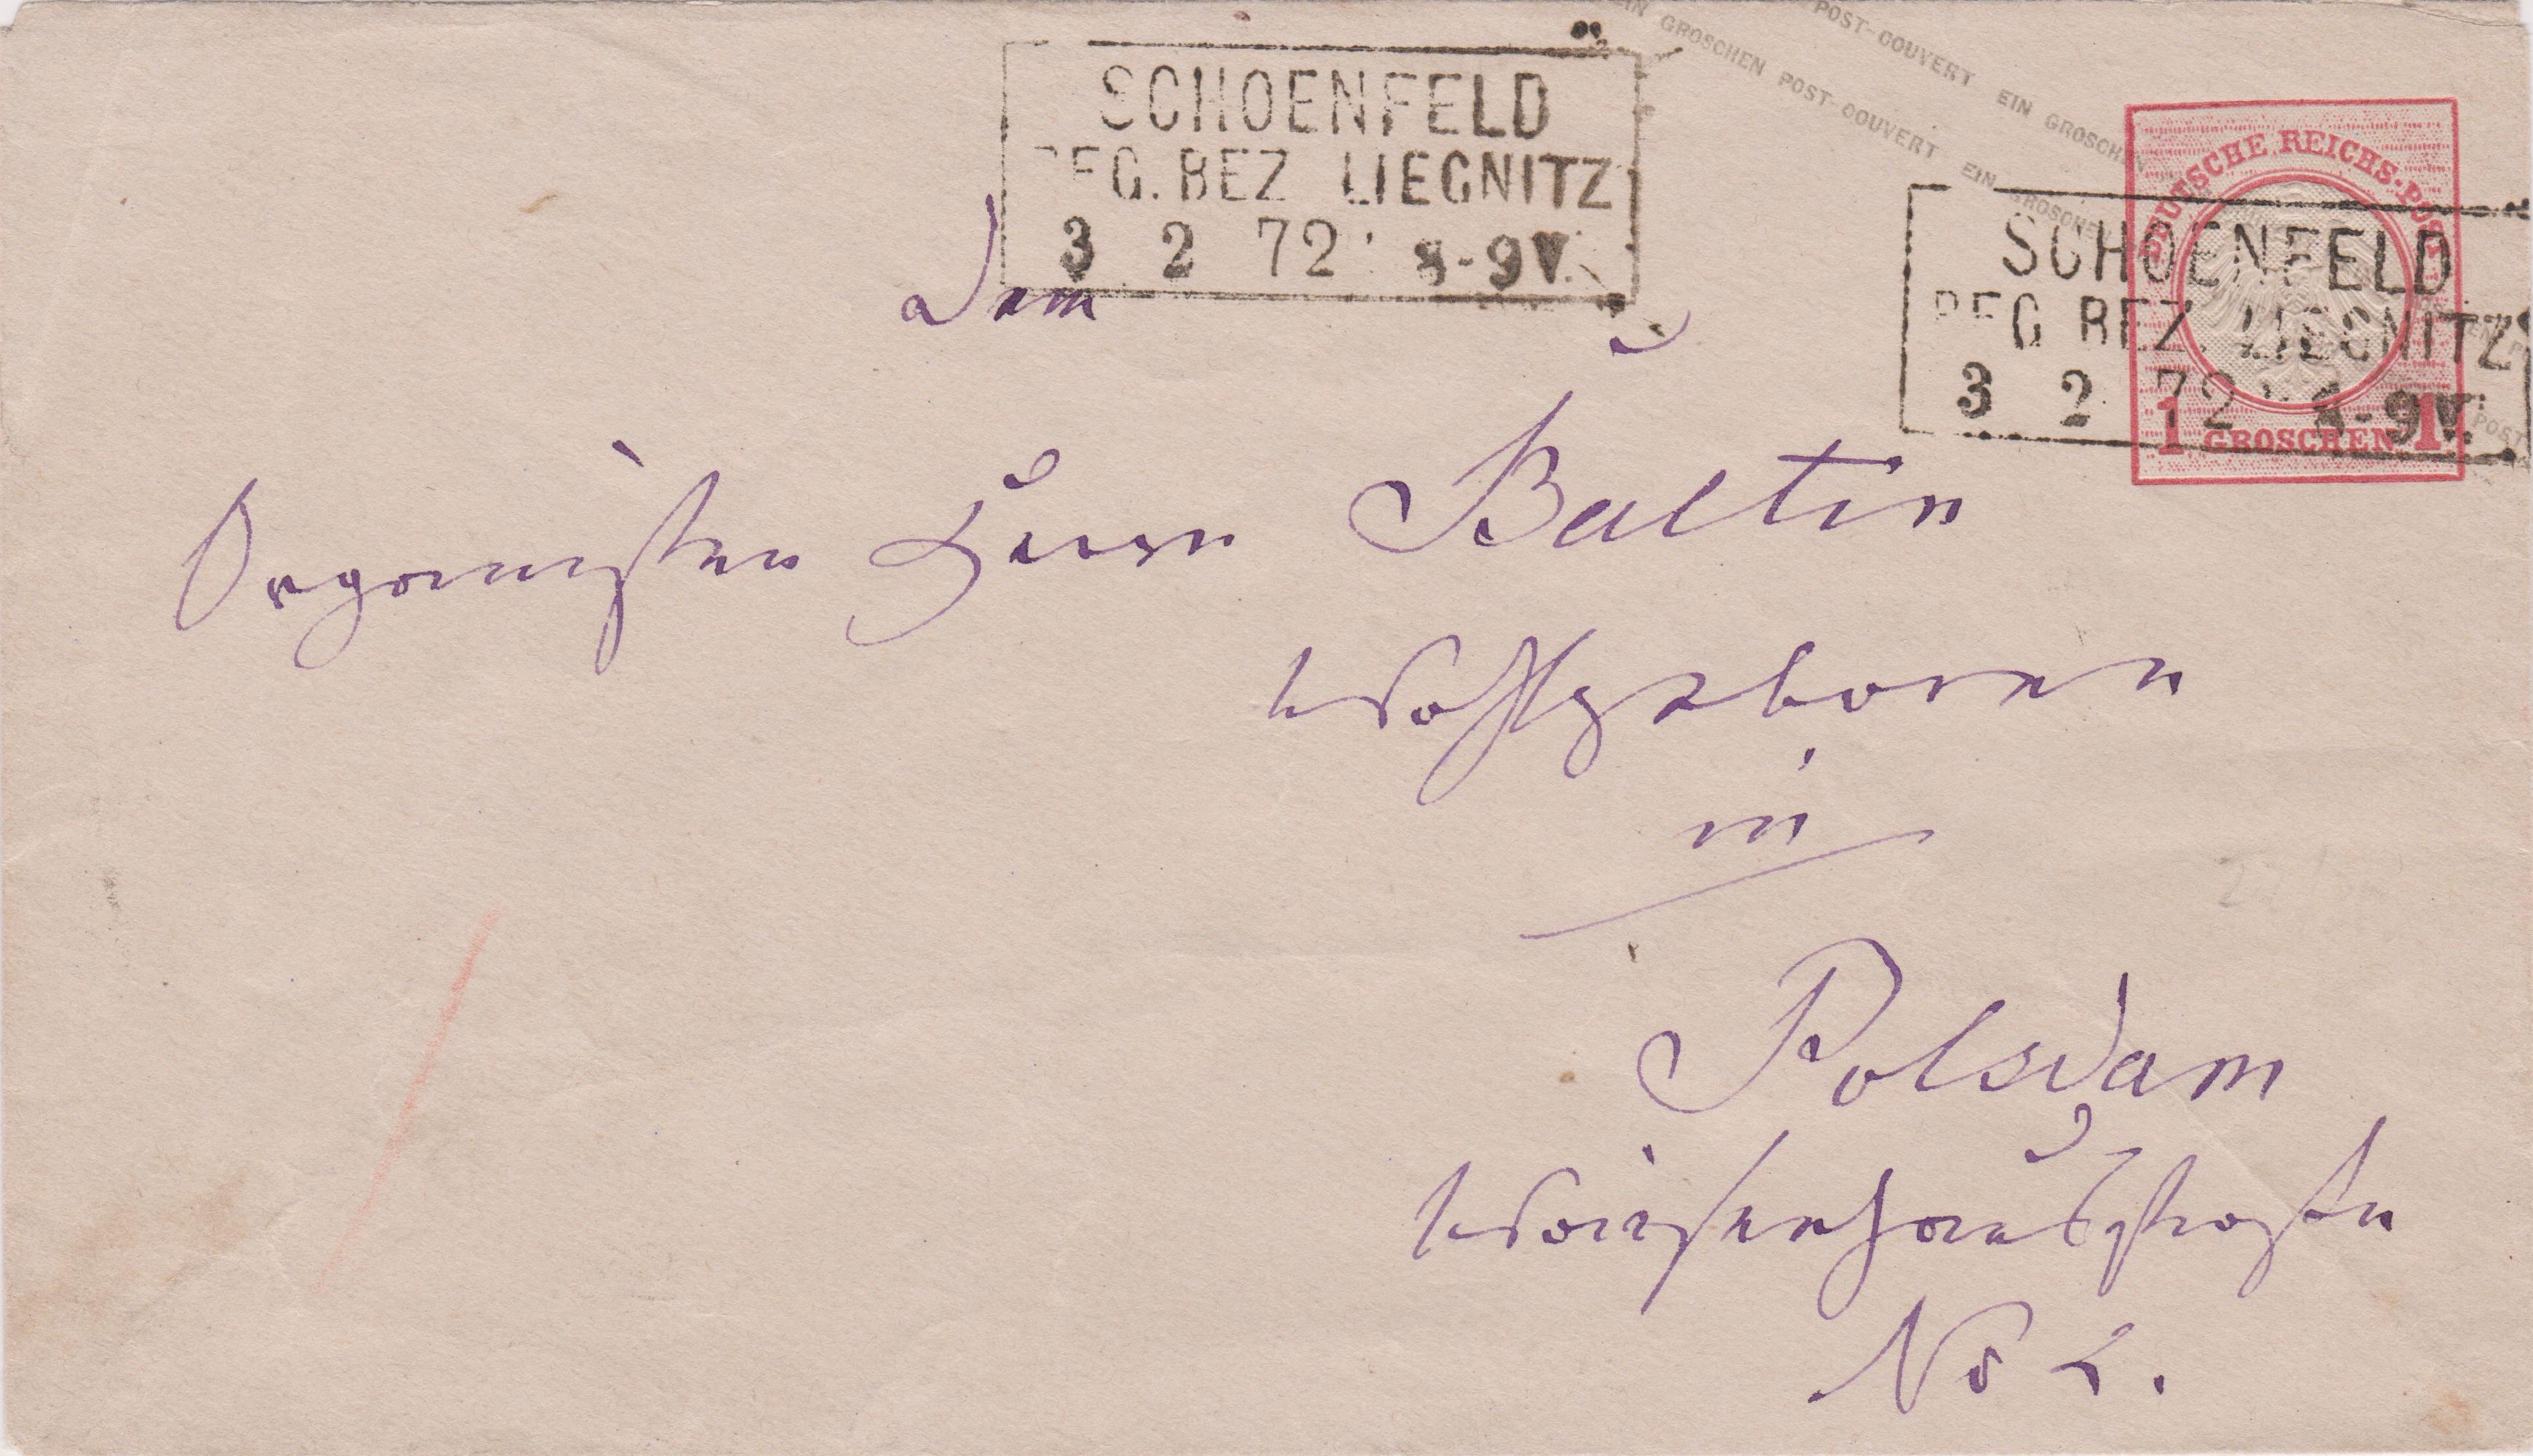 EIN GROSCHEN POST-COUVERT EIN GROSCHEN
POST-COUVERT EIN GROSCHEN
SCHOENFELD
REG. BEZ LIEGNITZ
3 2 72 8-9V.
DEUTSCHE REICHS-POST
1 GROSCHEN 1
SCHOENFELD
REG BEZ. LIEGNITZ
3 2 72 8-9V.
Dem
Organisten Herrn Baltin
Wohlgeboren
in
Potsdam
Waisenhausstraße
No 2.